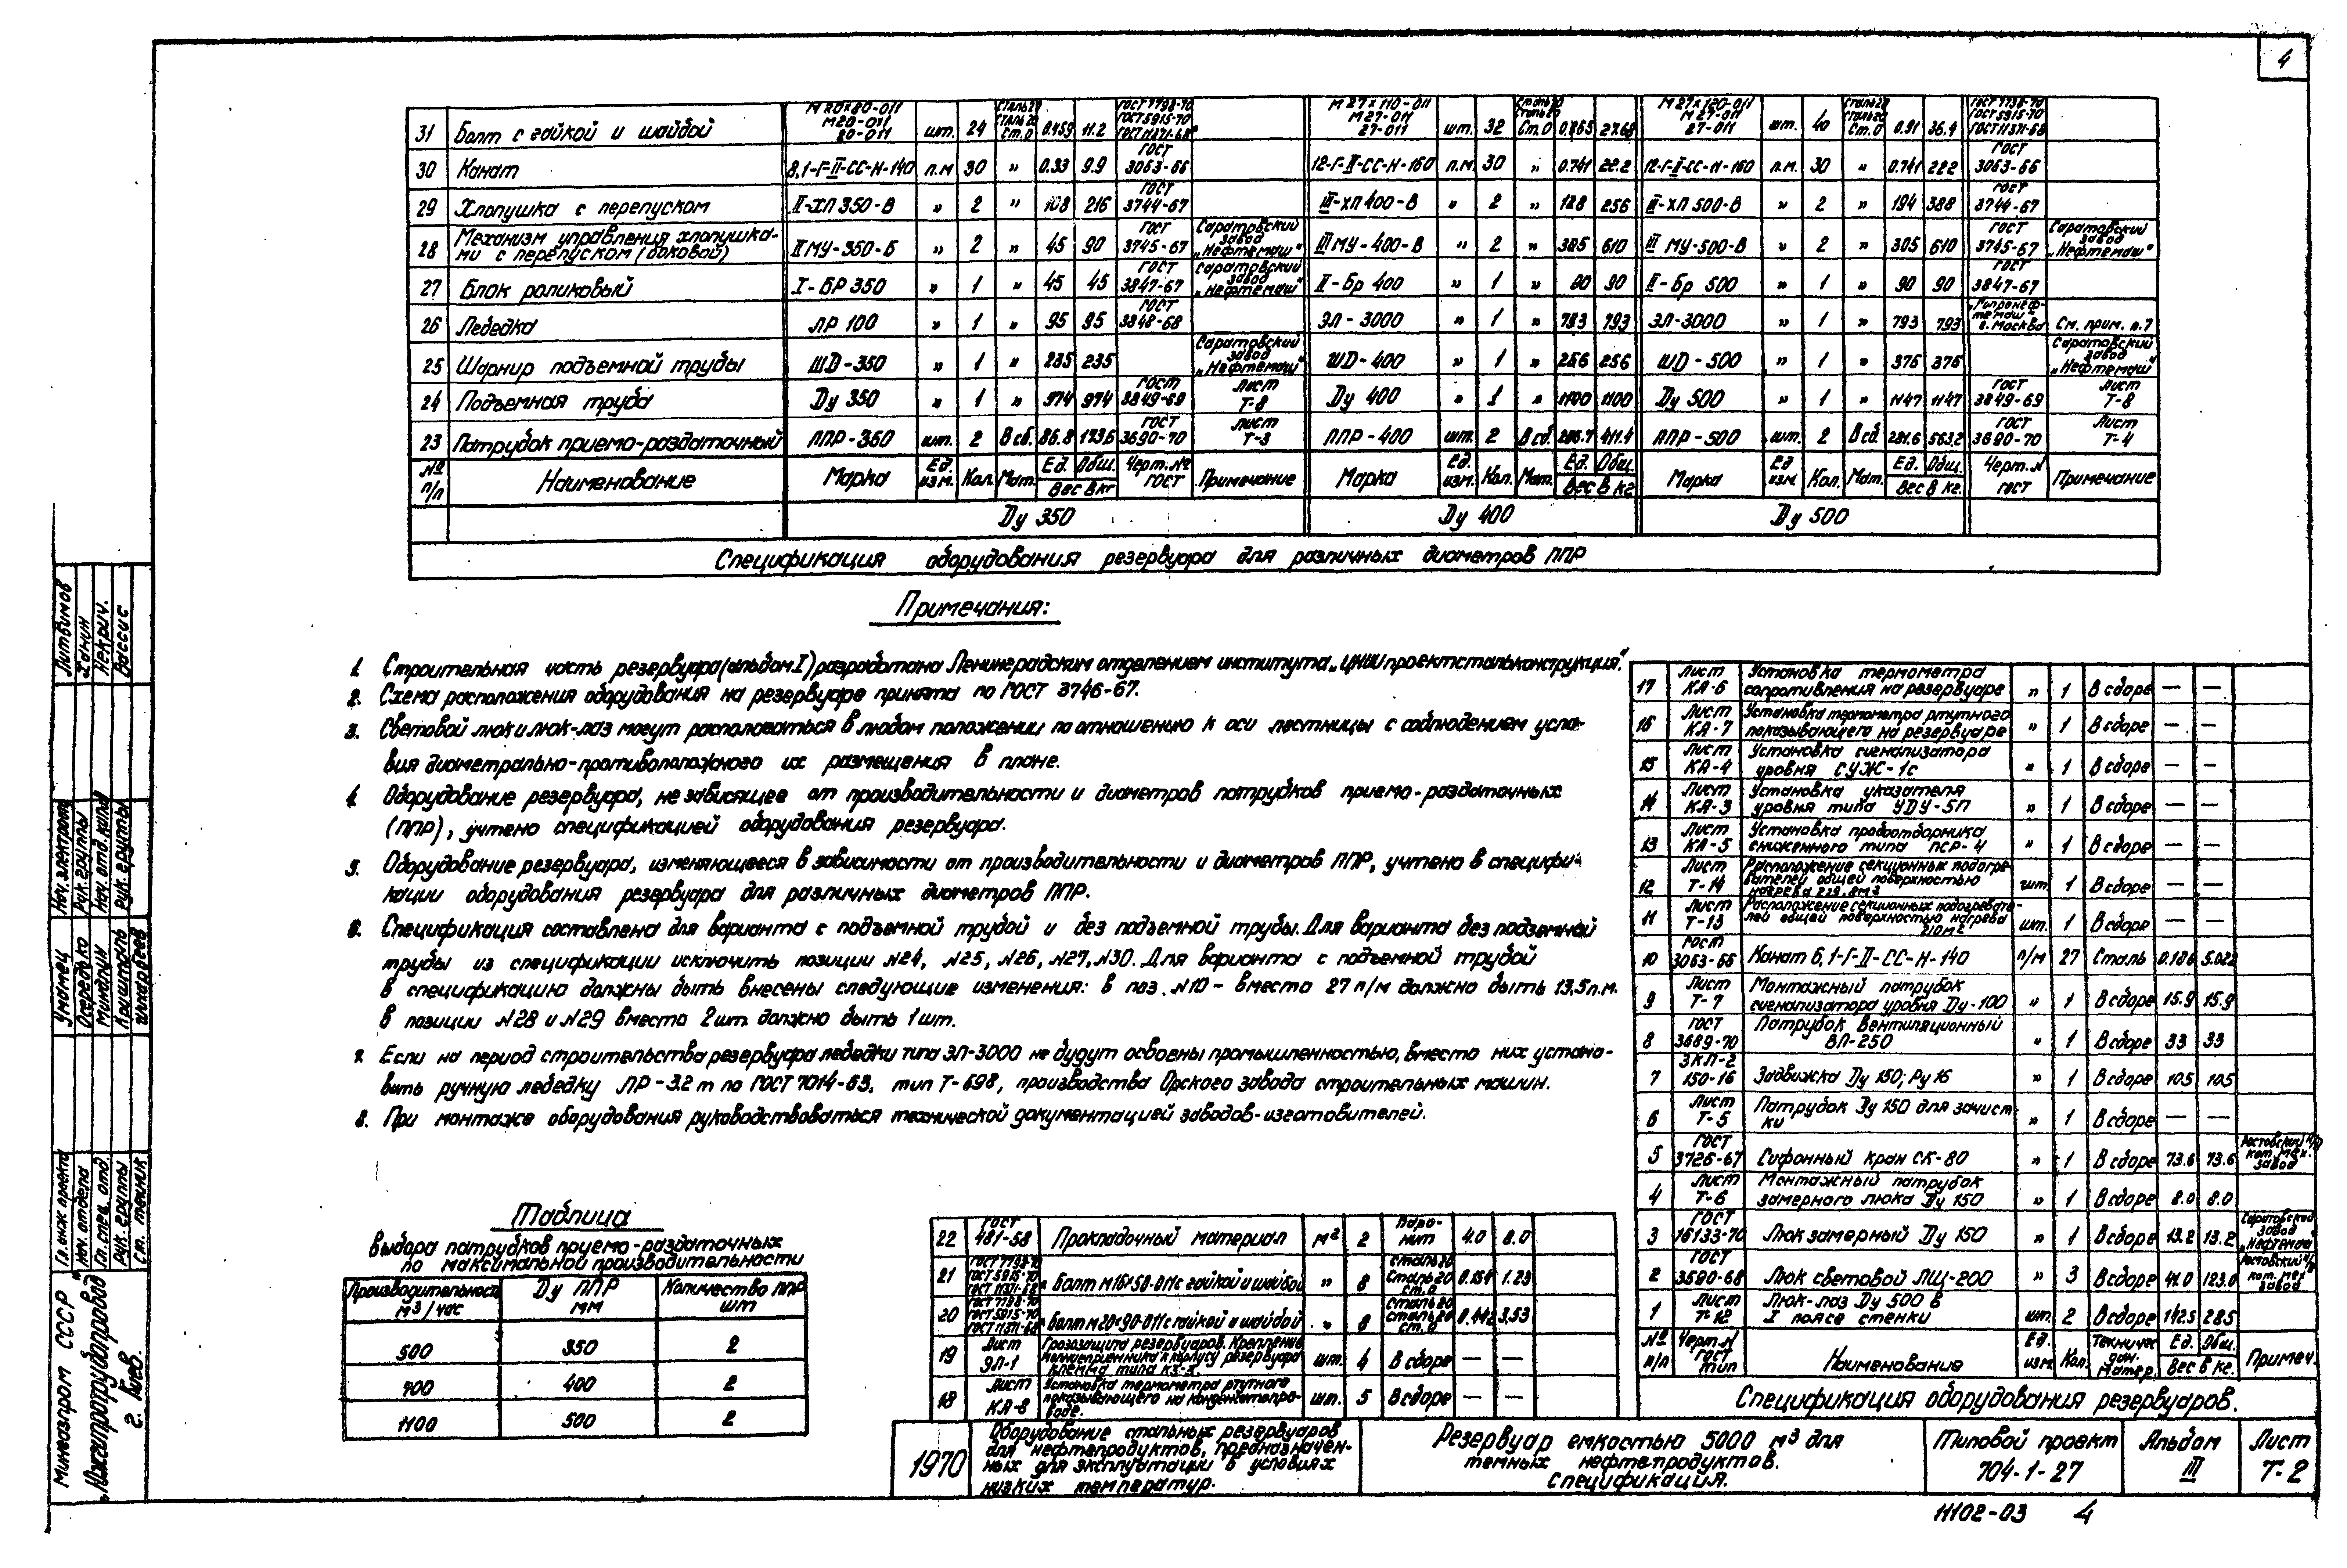 4
31 Болт с гайкой и шайбой М20×80-011 М20-011 20-011 шт. 24 Сталь20 Сталь20 Ст.0 0.459 11.2 ГОСТ 7798-70 ГОСТ 5915-70 ГОСТ 11371-68 М27×110-011 М27-011 27-011 шт. 32 Сталь20 Сталь20 Ст.0 0.865 27.68 М27×120-011 М27-011 27-011 шт. 40 Сталь20 Сталь20 Ст.0 0.91 36.4 ГОСТ 7798-70 ГОСТ 5915-70 ГОСТ 11371-68
30 Канат 8,1-Г-II-СС-Н-140 п.м 30 " 0.33 9.9 ГОСТ 3063-66 12-Г-II-СС-Н-160 п.м. 30 " 0.741 22.2 12-Г-II-СС-Н-160 п.м. 30 " 0.741 22.2 ГОСТ 3063-66
29 Хлопушка с перепуском II-ХП 350-В " 2 " 108 216 ГОСТ 3744-67 III-ХП 400-В " 2 " 128 256 III-ХП 500-В " 2 " 194 388 ГОСТ 3744-67
28 Механизм управления хлопушка-ми с перепуском (боковой) II МУ-350-Б " 2 " 45 90 ГОСТ 3745-67 Саратовский завод „Нефтемаш" III МУ-400-В " 2 " 305 610 III МУ-500-В " 2 " 305 610 ГОСТ 3745-67 Саратовский завод „Нефтемаш"
27 Блок роликовый I-БР 350 " 1 " 45 45 ГОСТ 3847-67 Саратовский завод „Нефтемаш" II-Бр 400 " 1 " 90 90 II-Бр 500 " 1 " 90 90 ГОСТ 3847-67
26 Лебедка ЛР 100 " 1 " 95 95 ГОСТ 3848-68 ЭЛ-3000 " 1 " 793 793 ЭЛ-3000 " 1 " 793 793 „Гипронеф-темаш" г. Москва См. прим. п.7
25 Шарнир подъемной трубы ШД-350 " 1 " 235 235 Саратовский завод „Нефтемаш" ШД-400 " 1 " 256 256 ШД-500 " 1 " 376 376 Саратовский завод „Нефтемаш"
24 Подъемная труба Ду 350 " 1 " 974 974 ГОСТ 3849-69 Лист Т-8 Ду 400 " 1 " 1100 1100 Ду 500 " 1 " 1147 1147 ГОСТ 3849-69 Лист Т-8
23 Патрубок приемо-раздаточный ППР-350 шт. 2 В сб. 86.8 173.6 ГОСТ 3690-70 Лист Т-3 ППР-400 шт. 2 В сб. 411.4 ППР-500 шт. 2 В сб. 281.6 563.2 ГОСТ 3690-70 Лист Т-4
№ п/п Наименование Марка Ед. изм. Кол. Мат. Ед. Общ. Вес в кг Черт. № ГОСТ Примечание Марка Ед. изм. Кол. Мат. Ед. Общ. Вес в кг Марка Ед изм. Кол. Мат. Ед. Общ. Вес в кг. Черт. № ГОСТ Примечание
Ду 350 Ду 400 Ду 500
Спецификация оборудования резервуара для различных диаметров ППР
Примечания:
1. Строительная часть резервуара (альбом I) разработана Ленинградским отделением института „ЦНИИпроектстальконструкция".
2. Схема расположения оборудования на резервуаре принята по ГОСТ 3746-67.
3. Световой люк и люк-лаз могут располагаться в любом положении по отношению к оси лестницы с соблюдением усло-
вия диаметрально-противоположного их размещения в плане.
4. Оборудование резервуара, не зависящее от производительности и диаметров патрубков приемо-раздаточных
(ППР), учтено спецификацией оборудования резервуара.
5. Оборудование резервуара, изменяющееся в зависимости от производительности и диаметров ППР, учтено в специфи-
кации оборудования резервуара для различных диаметров ППР.
6. Спецификация составлена для варианта с подъемной трубой и без подъемной трубы. Для варианта без подъемной
трубы из спецификации исключить позиции №24, №25, №26, №27, №30. Для варианта с подъемной трубой
в спецификацию должны быть внесены следующие изменения: в поз. №10 - вместо 27 п/м должно быть 13.5 п.м.
в позиции №28 и №29 вместо 2 шт. должно быть 1 шт.
7. Если на период строительства резервуара лебедки типа ЭЛ-3000 не будут освоены промышленностью, вместо них устано-
вить ручную лебедку ЛР-3.2 т по ГОСТ 7014-63, тип Т-69В, производства Орского завода строительных машин.
8. При монтаже оборудования руководствоваться технической документацией заводов-изготовителей.
Таблица
выбора патрубков приемо-раздаточных
по максимальной производительности
Производительность м3/час Ду ППР мм Количество ППР шт
500 350 2
700 400 2
1100 500 2
17 Лист КА-6 Установка термометра сопротивления на резервуаре " 1 В сборе — —
16 Лист КА-7 Установка термометра ртутного показывающего на резервуаре " 1 В сборе — —
15 Лист КА-4 Установка сигнализатора уровня СУЖ-1с " 1 В сборе — —
14 Лист КА-3 Установка указателя уровня типа УДУ-5П " 1 В сборе — —
13 Лист КА-5 Установка пробоотборника сниженного типа ПСР-4 " 1 В сборе — —
12 Лист Т-14 Расположение секционных подогре-вателей общей поверхностью нагрева шт. 1 В сборе — —
11 Лист Т-13 Расположение секционных подогревате-лей общей поверхностью нагрева 210м2 шт. 1 В сборе — —
10 ГОСТ 3063-66 Канат 6,1-Г-II-СС-Н-140 п/м 27 Сталь 0.186 5.022
9 Лист Т-7 Монтажный патрубок сигнализатора уровня Ду-100 " 1 В сборе 15.9 15.9
8 ГОСТ 3689-70 Патрубок вентиляционный ВП-250 " 1 В сборе 33 33
7 ЗКЛ-2 150-16 Задвижка Ду 150; Ру 16 " 1 В сборе 105 105
6 Лист Т-5 Патрубок Ду 150 для зачист-ки " 1 В сборе — —
5 ГОСТ 3726-67 Сифонный кран СК-80 " 1 В сборе 73.6 73.6 Ростовский н/Д кот. мех. завод
4 Лист Т-6 Монтажный патрубок замерного люка Ду 150 " 1 В сборе 8.0 8.0
3 ГОСТ 16133-70 Люк замерный Ду 150 " 1 В сборе 13.2 13.2 Саратовский завод „Нефтемаш"
2 ГОСТ 3590-68 Люк световой ЛЩ-200 " 3 В сборе 41.0 123.0 Ростовский н/Д кот. мех завод
1 Лист Т-12 Люк-лаз Ду 500 в I поясе стенки шт. 2 В сборе 142.5 285
№ п/п Черт. № ГОСТ тип Наименование Ед. изм. Кол. Техничес. дан. матер. Ед. Общ. Вес в кг. Примеч.
Спецификация оборудования резервуаров.
22 ГОСТ 481-58 Прокладочный материал м2 2 Паро-нит 4.0 8.0
21 ГОСТ 7798-70 ГОСТ 5915-70 ГОСТ 11371-68 Болт М16×50-011 с гайкой и шайбой " 8 Сталь20 Сталь20 Ст.0 0.154 1.23
20 ГОСТ 7798-70 ГОСТ 5915-70 ГОСТ 11371-68 Болт М20×90-011 с гайкой и шайбой " 8 Сталь20 Сталь20 Ст.0 0.442 3.53
19 Лист ЭЛ-1 Грозозащита резервуаров. Крепление молниеприемника к корпусу резервуара клемма типа КЗ-3. шт. 4 В сборе — —
18 Лист КА-8 Установка термометра ртутного показывающего на конденсатопро-воде. шт. 5 В сборе — —
1970
Оборудование стальных резервуаров
для нефтепродуктов, предназначен-
ных для эксплуатации в условиях
низких температур.
Резервуар емкостью 5000 м3 для
темных нефтепродуктов.
Спецификация.
Типовой проект
704-1-27
Альбом
III
Лист
Т-2
11102-03 4
Мингазпром СССР
„Южгипротрубопровод"
г. Киев.
Гл. инж проекта Уманец Нач. электроот Литвинов
Нач. отдела Осередько Рук. группы Ханин
Гл. спец. отд. Миндлин Нач. отд. Некрич.
Рук. группы Рук. группы Вассис
Ст. техник